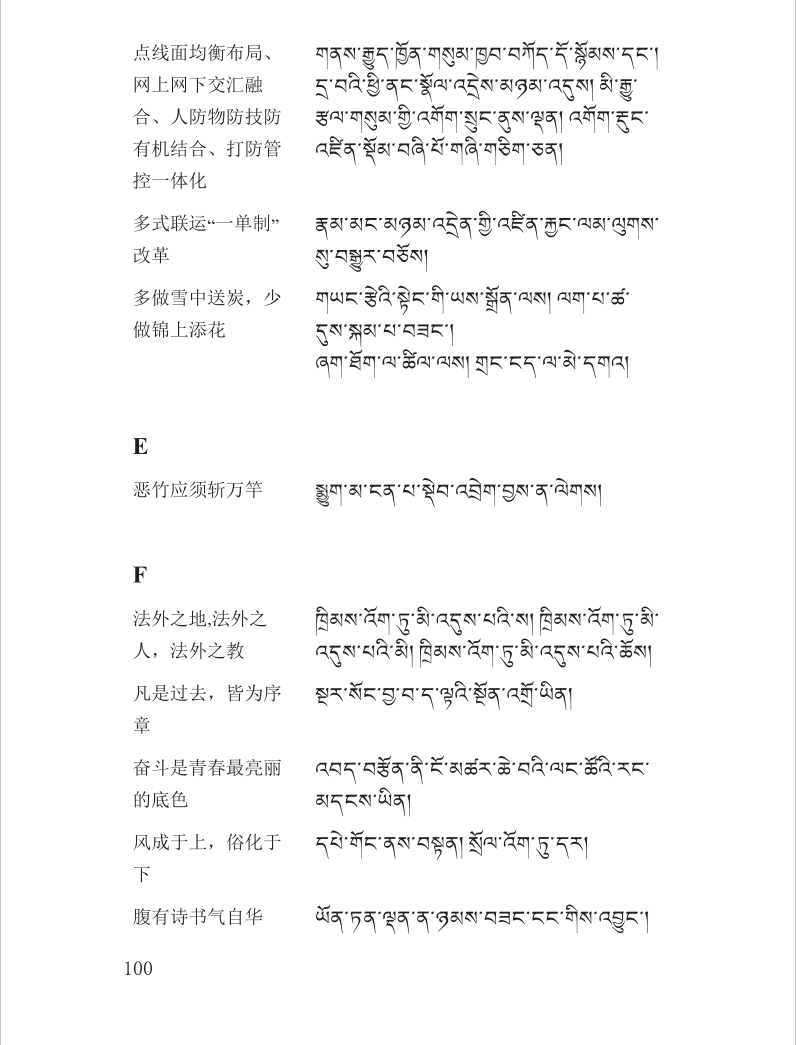 点线面均衡布局、 གནས་རྒྱུད་ཁྱོན་གསུམ་ཁྱབ་བཀོད་དོ་སྙོམས་དང་།
网上网下交汇融 དྲ་བའི་ཕྱི་ནང་སྣོལ་འདྲེས་མཉམ་འདུས། མི་རྒྱུ་
合、人防物防技防 རྩལ་གསུམ་གྱི་འགོག་སྲུང་ནུས་ལྡན། འགོག་རྡུང་
有机结合、打防管 འཛིན་སྡོམ་བཞི་པོ་གཞི་གཅིག་ཅན།
控一体化
多式联运“一单制” རྣམ་མང་མཉམ་འདྲེན་གྱི་འཛིན་རྐྱང་ལམ་ལུགས་
改革 སུ་བསྒྱུར་བཅོས།
多做雪中送炭，少 གཡང་རྩེའི་སྟེང་གི་ཡས་སྒྲོན་ལས། ལག་པ་ཚ་
做锦上添花 དུས་སྐམ་པ་བཟང་།
ཞག་ཐོག་ལ་ཚིལ་ལས། གྲང་ངད་ལ་མེ་དགའ།
E
恶竹应须斩万竿 སྨྱུག་མ་ངན་པ་སྡེབ་འབྲེག་བྱས་ན་ལེགས།
F
法外之地,法外之 ཁྲིམས་འོག་ཏུ་མི་འདུས་པའི་ས། ཁྲིམས་འོག་ཏུ་མི་
人，法外之教 འདུས་པའི་མི། ཁྲིམས་འོག་ཏུ་མི་འདུས་པའི་ཆོས།
凡是过去，皆为序 སྔར་སོང་བྱ་བ་ད་ལྟའི་སྔོན་འགྲོ་ཡིན།
章
奋斗是青春最亮丽 འབད་བརྩོན་ནི་ངོ་མཚར་ཆེ་བའི་ལང་ཚོའི་རང་
的底色 མདངས་ཡིན།
风成于上，俗化于 དཔེ་གོང་ནས་བསྟན། སྲོལ་འོག་ཏུ་དར།
下
腹有诗书气自华 ཡོན་ཏན་ལྡན་ན་ཉམས་བཟང་ངང་གིས་འབྱུང་།
100